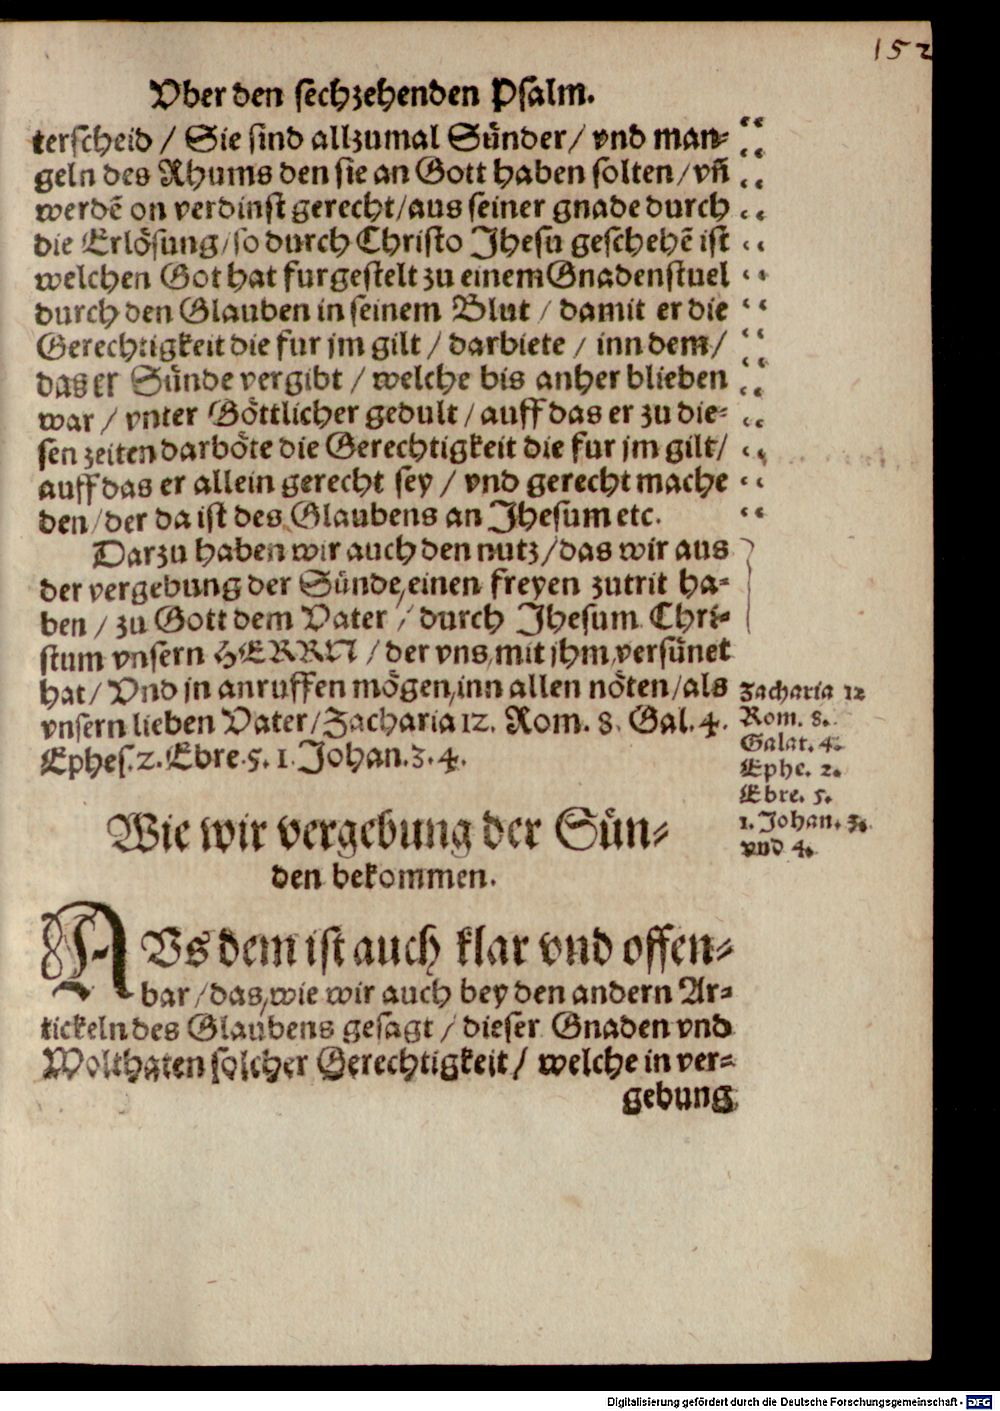 152
Vber den sechzehenden Psalm.
terscheid / Sie sind allzumal Sünder / vnd man-
geln des Rhums den sie an Gott haben solten / vñ
werdẽ on verdinst gerecht / aus seiner gnade durch
die Erlösung / so durch Christo Jhesu geschehẽ ist
welchen Got hat furgestelt zu einem Gnadenstuel
durch den Glauben in seinem Blut / damit er die
Gerechtigkeit die fur jm gilt / darbiete / inn dem /
das er Sünde vergibt / welche bis anher blieben
war / vnter Göttlicher gedult / auff das er zu die-
sen zeiten darböte die Gerechtigkeit die fur jm gilt /
auff das er allein gerecht sey / vnd gerecht mache
den / der da ist des Glaubens an Jhesum etc.
Darzu haben wir auch den nutz / das wir aus
der vergebung der Sünde, einen freyen zutrit ha-
ben / zu Gott dem Vater / durch Jhesum Chri-
stum vnsern HERRN / der vns, mit jhm, versünet
hat / Vnd jn anruffen mögen, inn allen nöten / als
vnsern lieben Vater / Zacharia 12. Rom. 8. Gal. 4.
Ephes. 2. Ebre. 5. 1. Johan. 3. 4.
Zacharia 12
Rom. 8.
Galat. 4.
Ephe. 2.
Ebre. 5.
1. Johan. 3.
vnd 4.
Wie wir vergebung der Sün-
den bekommen.
AVs dem ist auch klar vnd offen-
bar / das, wie wir auch bey den andern Ar-
tickeln des Glaubens gesagt / dieser Gnaden vnd
Wolthaten solcher Gerechtigkeit / welche in ver-
gebung
Digitalisierung gefördert durch die Deutsche Forschungsgemeinschaft - DFG